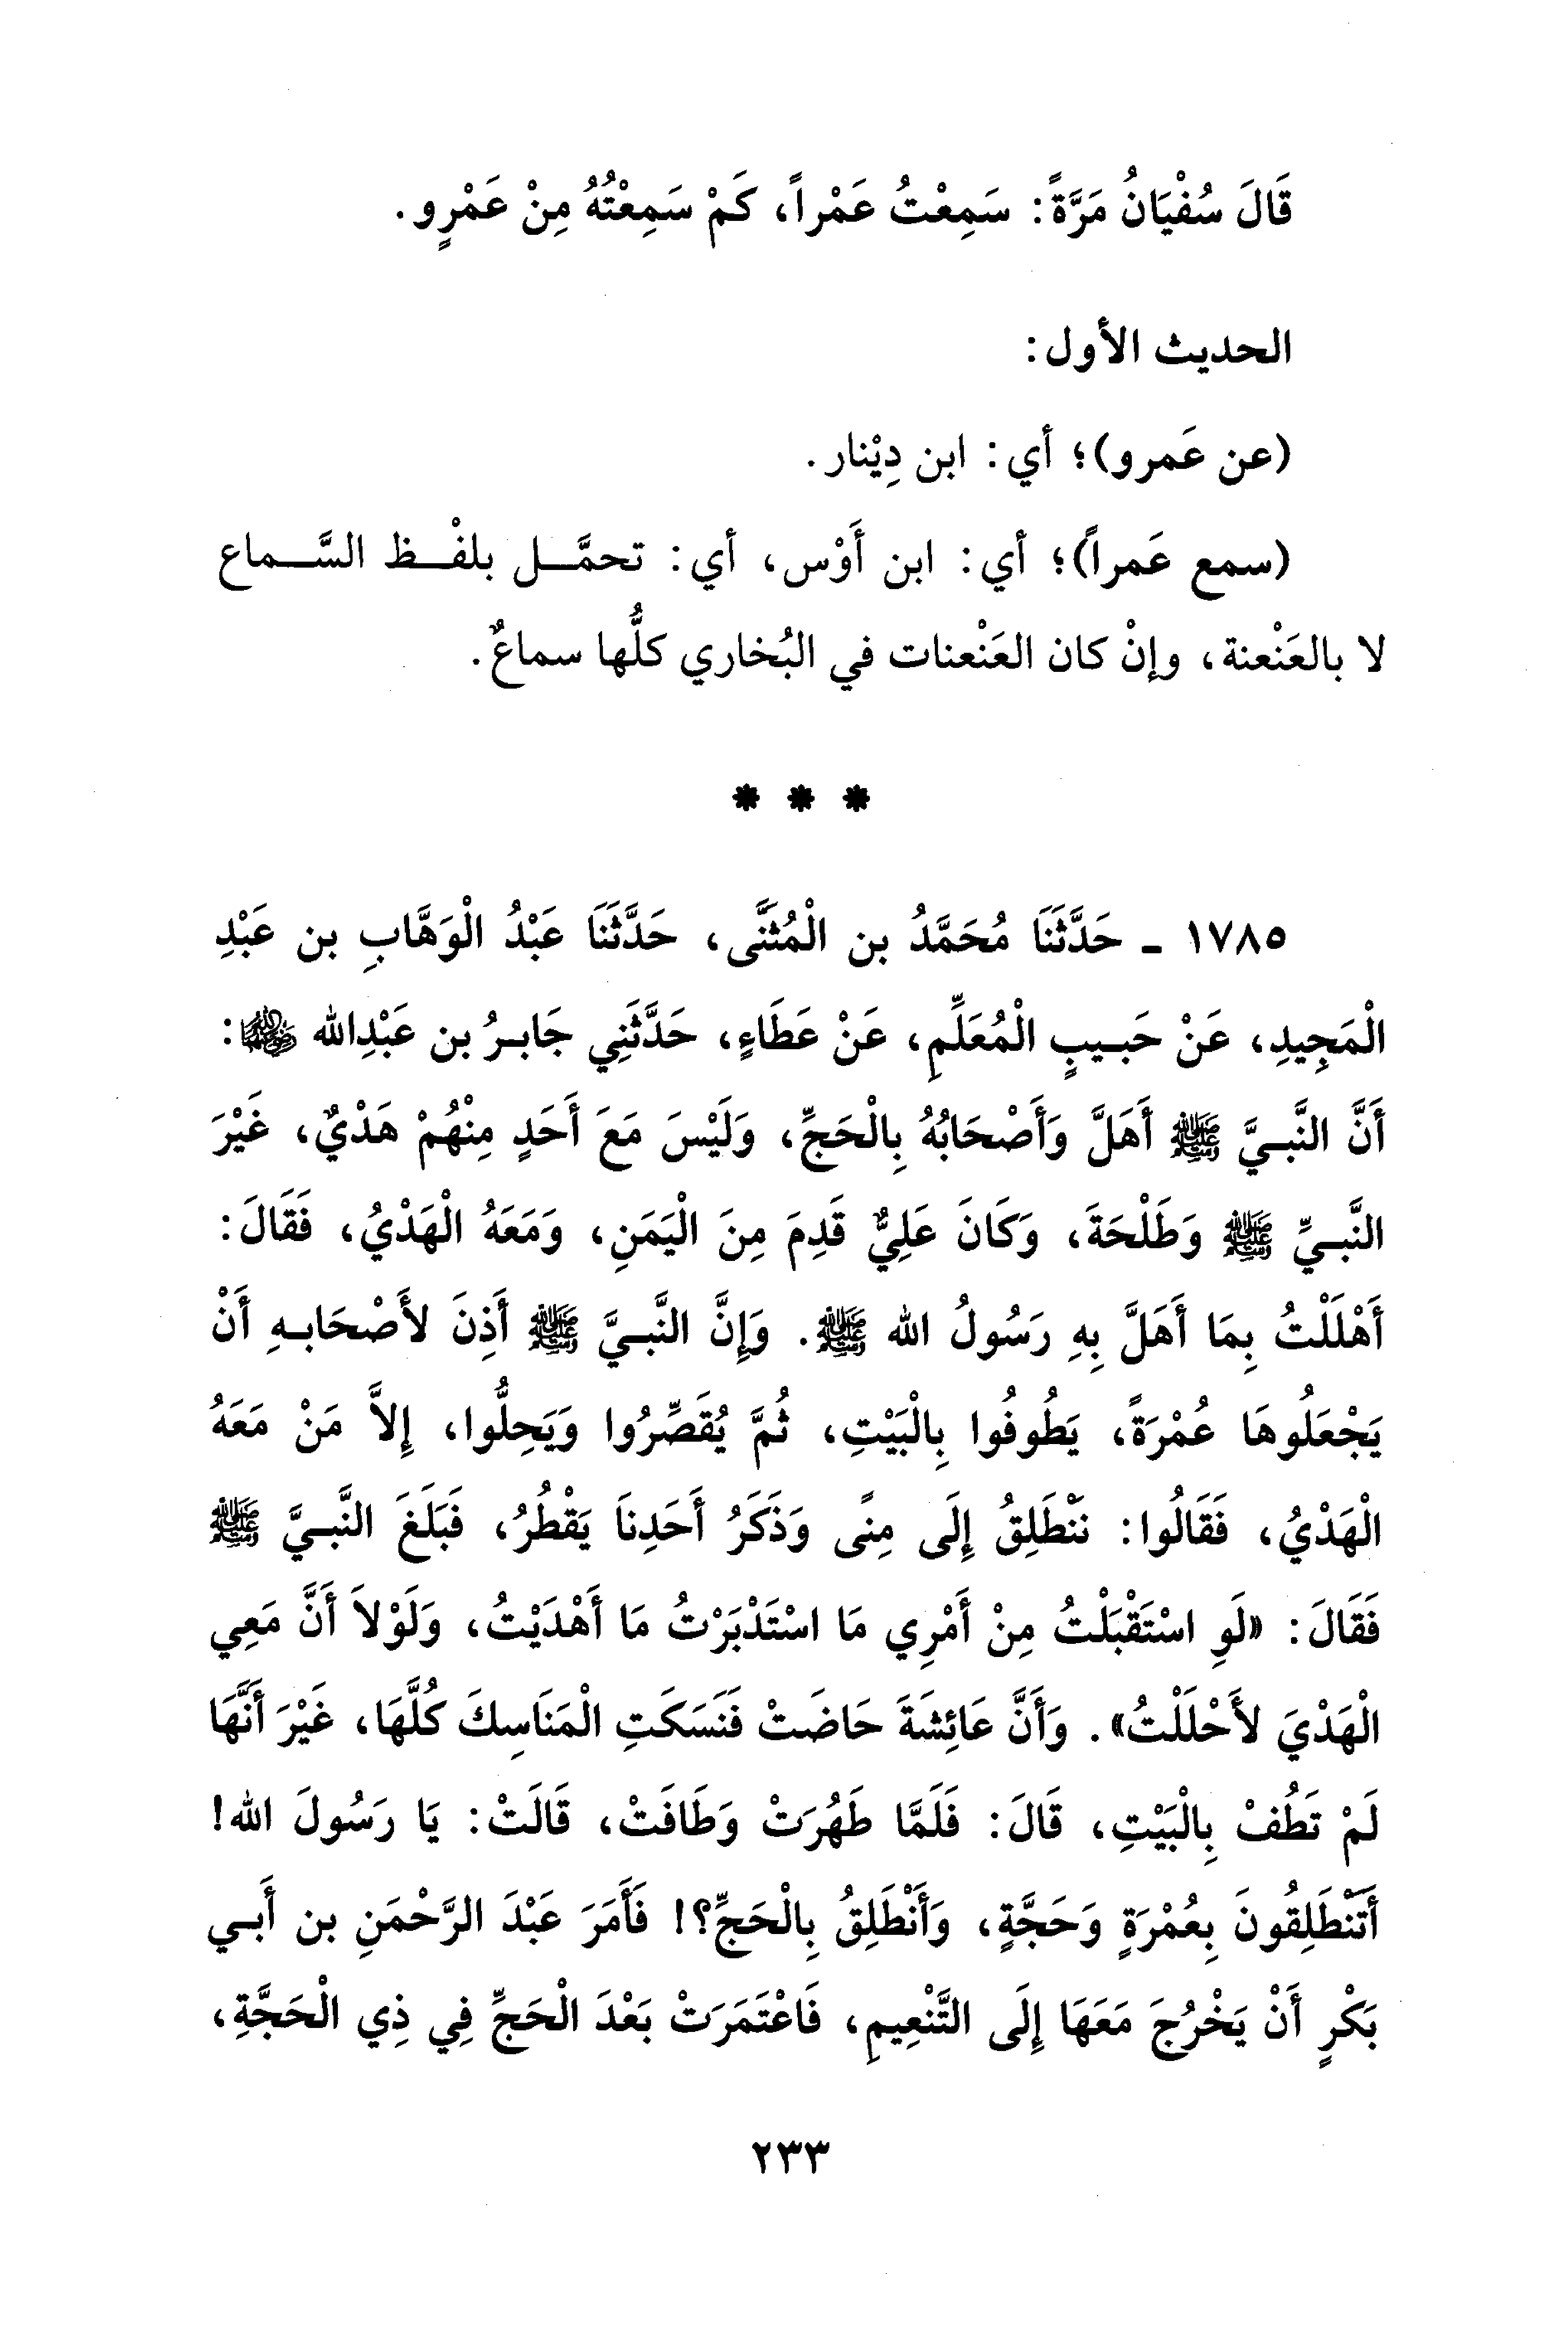 قَالَ سُفْيَانُ مَرَّةً: سَمِعْتُ عَمْراً، كَمْ سَمِعْتُهُ مِنْ عَمْرٍو.
الحديث الأول:
(عن عَمرو)؛ أي: ابن دِيْنار.
(سمع عَمراً)؛ أي: ابن أَوْس، أي: تحمَّـل بلفْـظ السَّـماع
لا بالعَنْعنة، وإنْ كان العَنْعنات في البُخاري كلُّها سماعٌ.
* * *
١٧٨٥ - حَدَّثَنَا مُحَمَّدُ بن الْمُثَنَّى، حَدَّثَنَا عَبْدُ الْوَهَّابِ بن عَبْدِ
الْمَجِيدِ، عَنْ حَبـيبٍ الْمُعَلِّمِ، عَنْ عَطَاءٍ، حَدَّثَنِي جَابـرُ بن عَبْدِالله رضي الله عنهما:
أَنَّ النَّبـيَّ ﷺ أَهَلَّ وَأَصْحَابُهُ بِالْحَجِّ، وَلَيْسَ مَعَ أَحَدٍ مِنْهُمْ هَدْيٌ، غَيْرَ
النَّبـيِّ ﷺ وَطَلْحَةَ، وَكَانَ عَلِيٌّ قَدِمَ مِنَ الْيَمَنِ، وَمَعَهُ الْهَدْيُ، فَقَالَ:
أَهْلَلْتُ بِمَا أَهَلَّ بِهِ رَسُولُ الله ﷺ. وَإِنَّ النَّبـيَّ ﷺ أَذِنَ لأَصْحَابـهِ أَنْ
يَجْعَلُوهَا عُمْرَةً، يَطُوفُوا بِالْبَيْتِ، ثُمَّ يُقَصِّرُوا وَيَحِلُّوا، إِلاَّ مَنْ مَعَهُ
الْهَدْيُ، فَقَالُوا: نَنْطَلِقُ إِلَى مِنًى وَذَكَرُ أَحَدِنَا يَقْطُرُ، فَبَلَغَ النَّبـيَّ ﷺ
فَقَالَ: «لَوِ اسْتَقْبَلْتُ مِنْ أَمْرِي مَا اسْتَدْبَرْتُ مَا أَهْدَيْتُ، وَلَوْلاَ أَنَّ مَعِي
الْهَدْيَ لأَحْلَلْتُ». وَأَنَّ عَائِشَةَ حَاضَتْ فَنَسَكَتِ الْمَنَاسِكَ كُلَّهَا، غَيْرَ أَنَّهَا
لَمْ تَطُفْ بِالْبَيْتِ، قَالَ: فَلَمَّا طَهُرَتْ وَطَافَتْ، قَالَتْ: يَا رَسُولَ الله!
أَتَنْطَلِقُونَ بِعُمْرَةٍ وَحَجَّةٍ، وَأَنْطَلِقُ بِالْحَجِّ؟! فَأَمَرَ عَبْدَ الرَّحْمَنِ بن أَبـي
بَكْرٍ أَنْ يَخْرُجَ مَعَهَا إِلَى التَّنْعِيمِ، فَاعْتَمَرَتْ بَعْدَ الْحَجِّ فِي ذِي الْحَجَّةِ،
٢٣٣